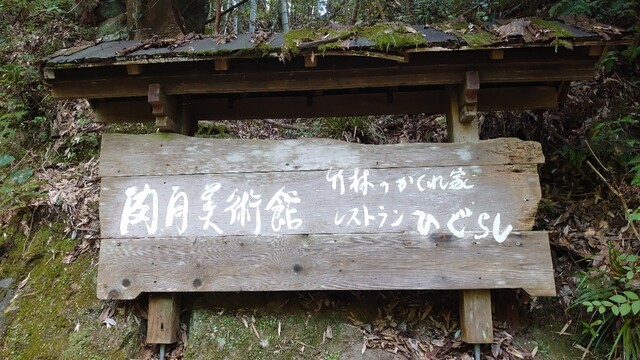 閑月美術館
竹林のかくれ家
レストラン ひぐらし